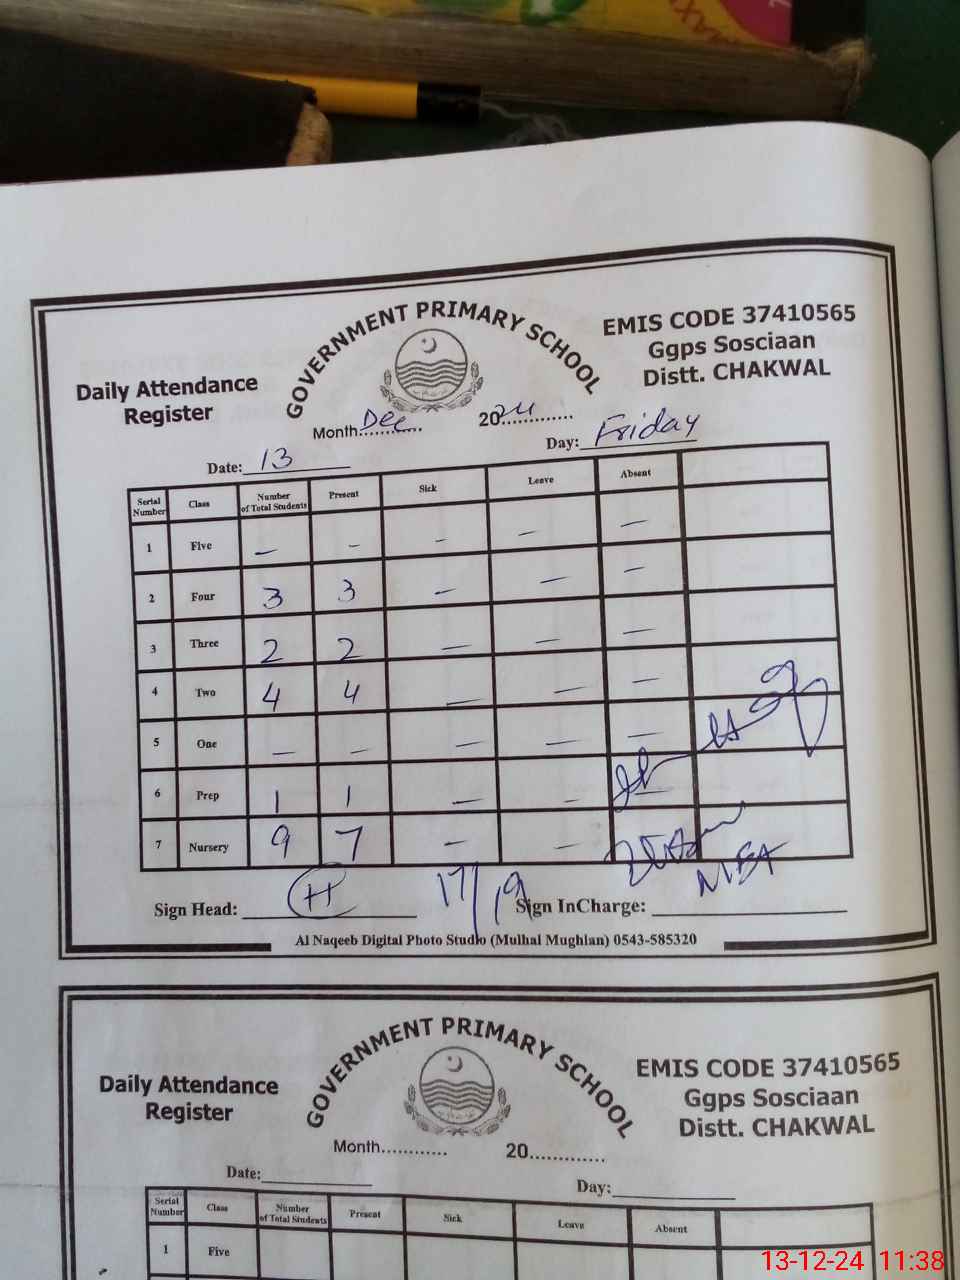 GOVERNMENT PRIMARY SCHOOL
EMIS CODE 37410565
Ggps Sosciaan
Distt. CHAKWAL
Daily Attendance
Register
Month Dec 2024
Date: 13 Day: Friday
Serial Number Class Number of Total Students Present Sick Leave Absent
1 Five – – – – –
2 Four 3 3 – – –
3 Three 2 2 – – –
4 Two 4 4 – – –
5 One – – – –
6 Prep 1 1 – –
7 Nursery 9 7 – –
MEA
Sign Head: H 17/19 Sign InCharge:
Al Naqeeb Digital Photo Studio (Mulhal Mughlan) 0543-585320
GOVERNMENT PRIMARY SCHOOL
EMIS CODE 37410565
Ggps Sosciaan
Distt. CHAKWAL
Daily Attendance
Register
Month............ 20.............
Date: Day:
Serial Number Class Number of Total Students Present Sick Leave Absent
1 Five
13-12-24 11:38